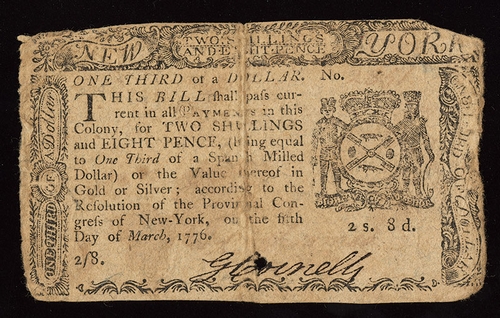 NEW
TWO SHILLINGS
AND EIGHT-PENCE
YORK
ONE THIRD OF A Dollar
ONE THIRD of a DOLLAR. No.
THIS BILL shall pass cur-
rent in all PAYMENTS in this
Colony, for TWO SHILLINGS
and EIGHT PENCE, (being equal
to One Third of a Spanish Milled
Dollar) or the Value thereof in
Gold or Silver; according to the
Resolution of the Provincial Con-
gress of New-York, on the fifth
Day of March, 1776.
2/8.
2 s. 8 d.
THIRD OF A DOLLAR